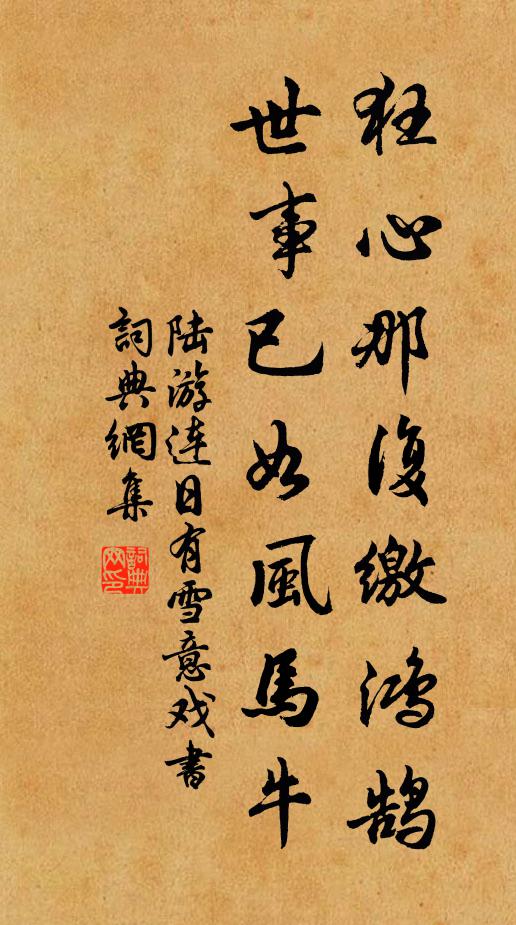 狂心那復繳鴻鹄
世事已如風馬牛
陆游连日有雪意戏書
詞典網集
詞典網印